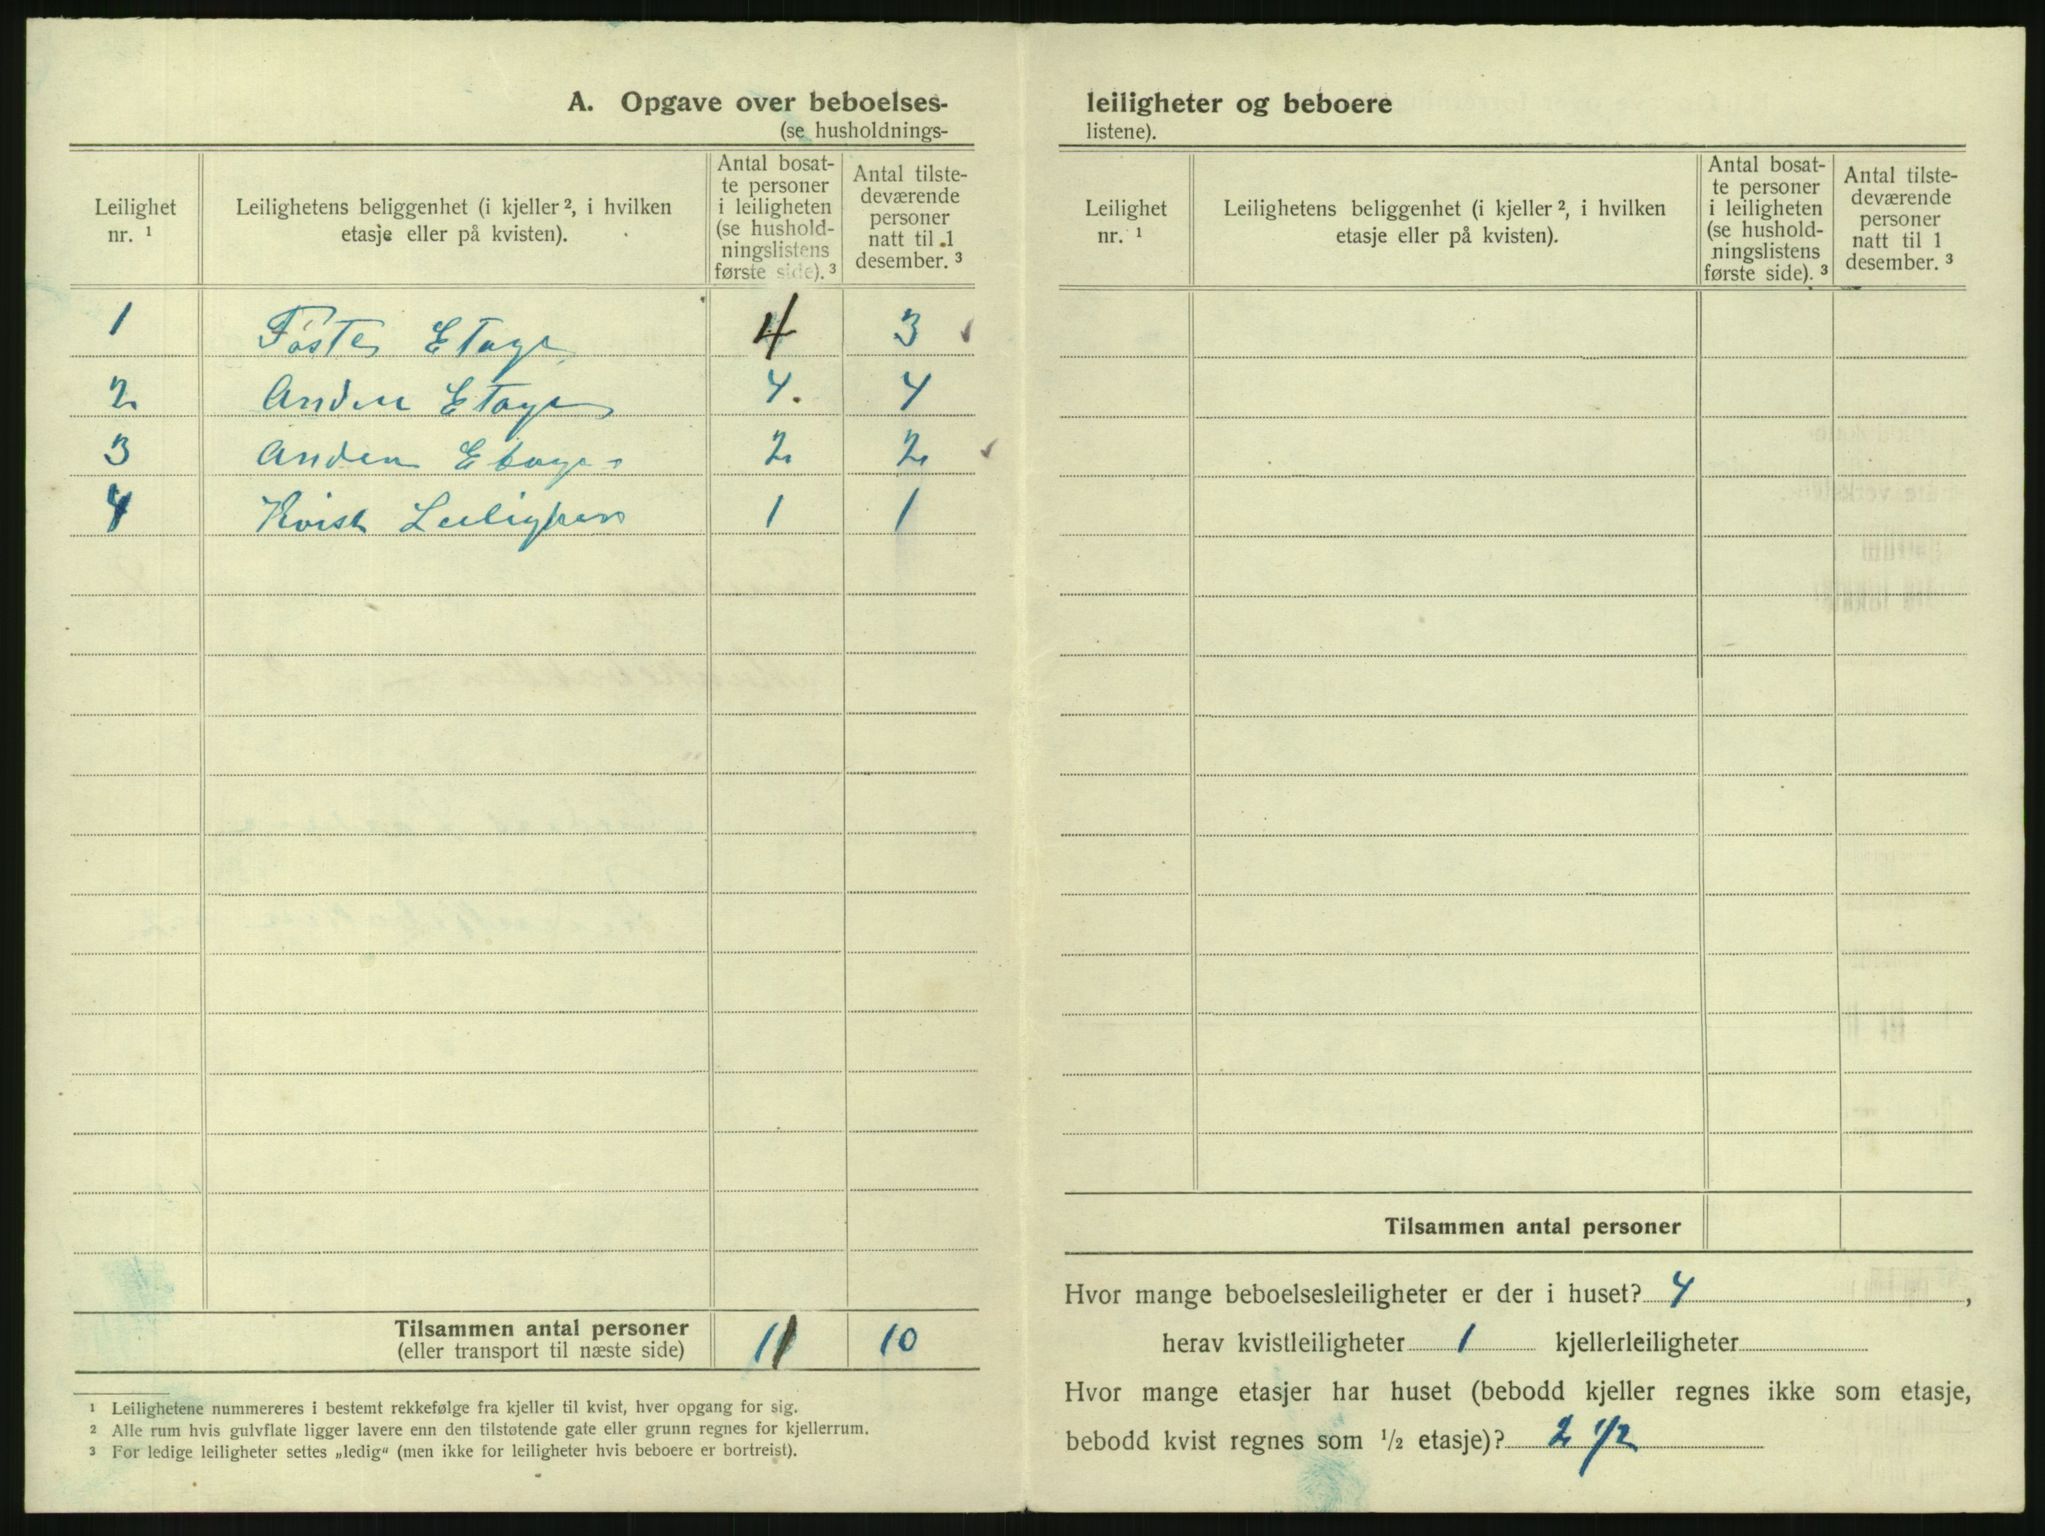 A. Opgave over beboelses-
(se husholdnings-
Leilighet nr. ¹
Leilighetens beliggenhet (i kjeller ², i hvilken etasje eller på kvisten).
Antal bosat-te personer i leiligheten (se hushold-ningslistens første side). ³
Antal tilste-deværende personer natt til 1 desember. ³
1 Føste Etage 4 3
2 Anden Etage 4. 4
3 Anden Etage 2 2
4 Kvist 1 1
Tilsammen antal personer 11 10
(eller transport til næste side)
¹ Leilighetene nummereres i bestemt rekkefølge fra kjeller til kvist, hver opgang for sig.
² Alle rum hvis gulvflate ligger lavere enn den tilstøtende gate eller grunn regnes for kjellerrum.
³ For ledige leiligheter settes „ledig“ (men ikke for leiligheter hvis beboere er bortreist).
leiligheter og beboere
listene).
Leilighet nr. ¹
Leilighetens beliggenhet (i kjeller ², i hvilken etasje eller på kvisten).
Antal bosat-te personer i leiligheten (se hushold-ningslistens første side). ³
Antal tilste-deværende personer natt til 1 desember. ³
Tilsammen antal personer
Hvor mange beboelsesleiligheter er der i huset? 4 ,
herav kvistleiligheter 1 kjellerleiligheter
Hvor mange etasjer har huset (bebodd kjeller regnes ikke som etasje,
bebodd kvist regnes som ½ etasje)? 2 1/2